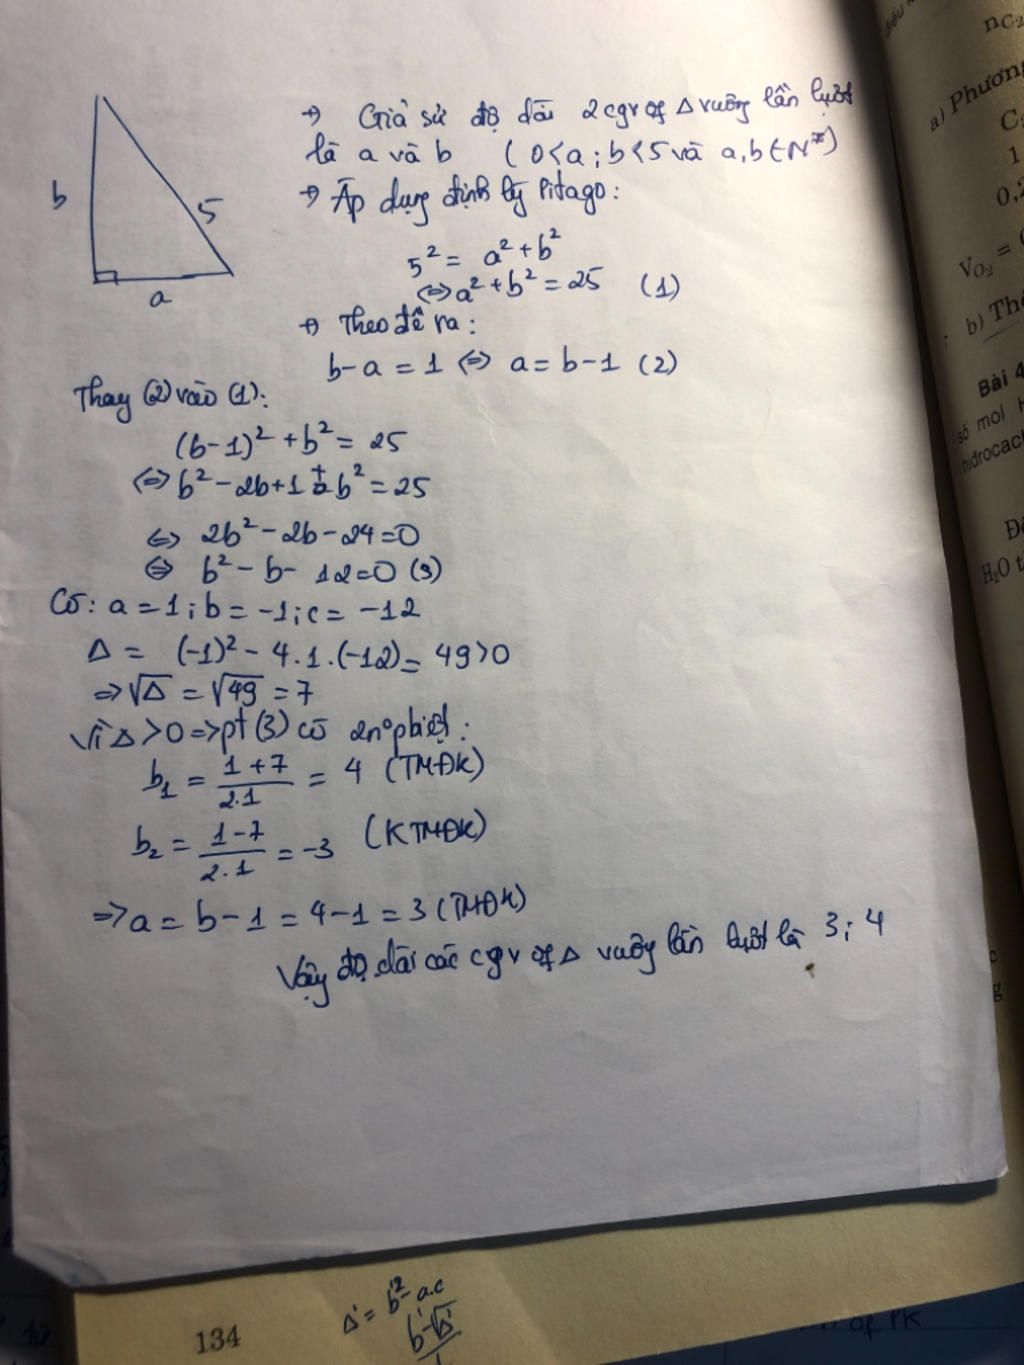 → Giả sử độ dài 2 cgv of Δ vuông lần lượt
là a và b ( 0<a ; b<5 và a, b ∈ N*)
→ Áp dụng định lý Pitago:
b
5
a
5² = a² + b²
⇔ a² + b² = 25 (1)
→ Theo đề ra:
b - a = 1 ⇔ a = b - 1 (2)
Thay (2) vào (1):
(b-1)² + b² = 25
⇔ b² - 2b + 1 + b² = 25
⇔ 2b² - 2b - 24 = 0
⇔ b² - b - 12 = 0 (3)
Có: a = 1 ; b = -1 ; c = -12
Δ = (-1)² - 4.1.(-12) = 49 > 0
⇒ √Δ = √49 = 7
Vì Δ > 0 ⇒ pt (3) có 2n° pbiệt:
b₁ = (1+7)/(2.1) = 4 (TMĐK)
b₂ = (1-7)/(2.1) = -3 (KTMĐK)
⇒ a = b - 1 = 4 - 1 = 3 (TMĐK)
Vậy độ dài các cgv of Δ vuông lần lượt là 3 ; 4
nC₂
a) Phương
C₂
1
0,2
V_O₂ =
b) Thể
Bài 4
số mol h
hiđrocacb
H₂O t
134
Δ' = b'² - a.c
b' - √Δ'
of PK